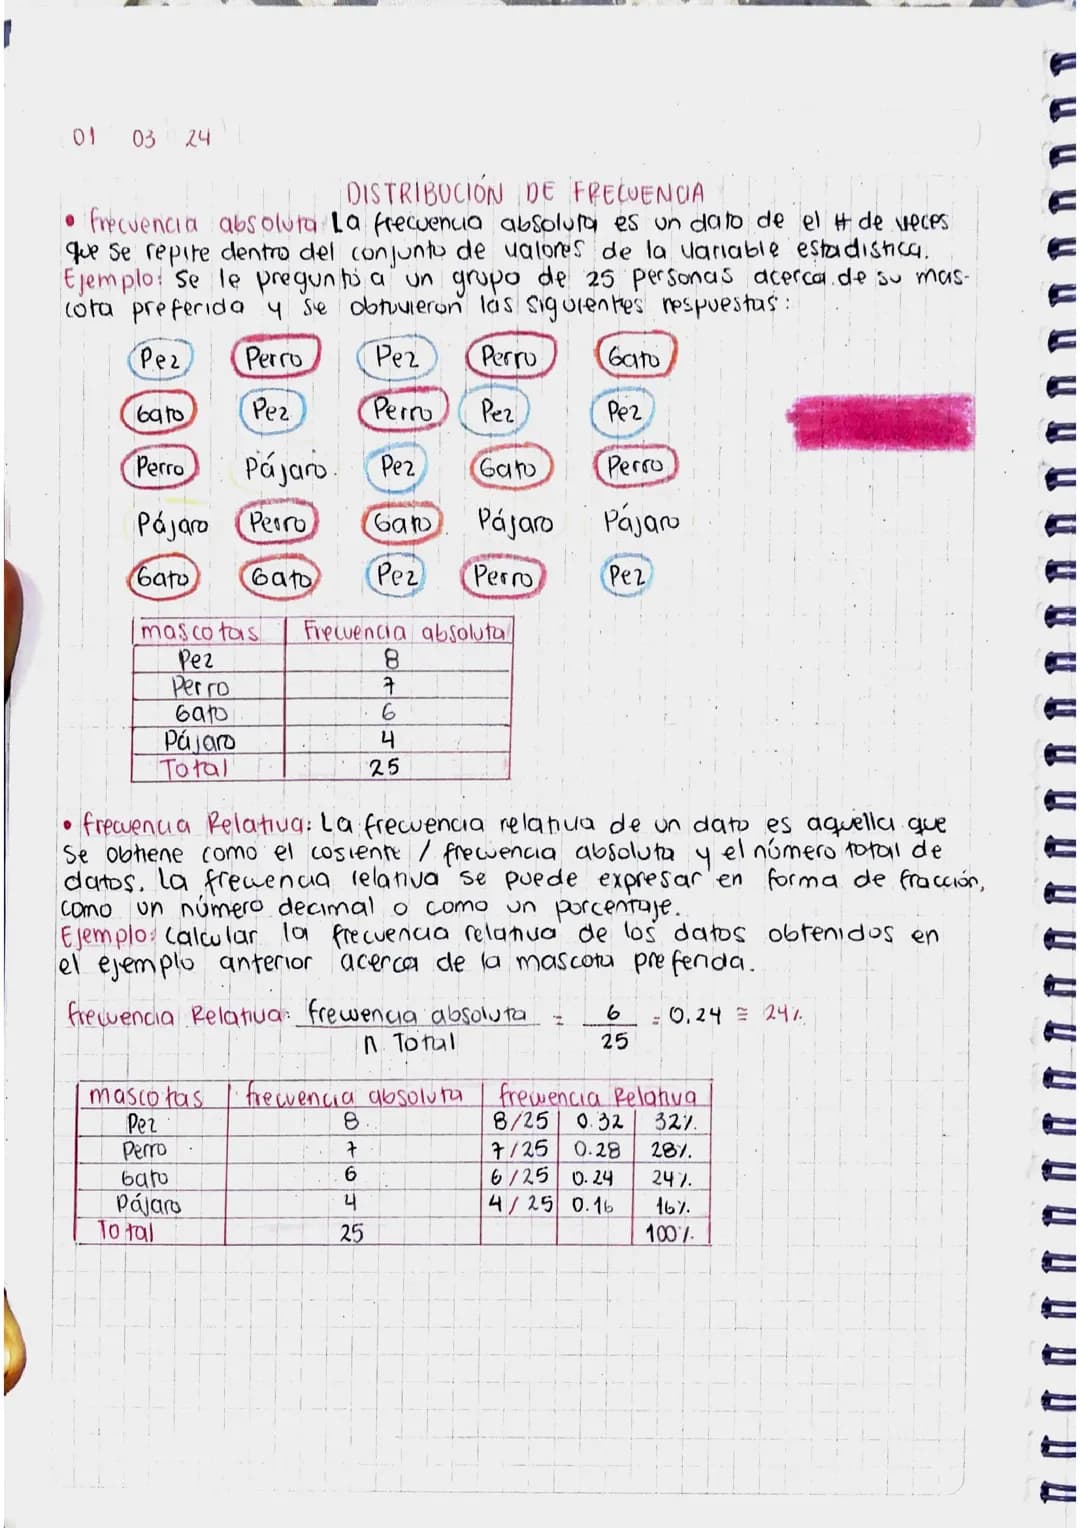 01 03 24
DISTRIBUCIÓN DE FRECUENCIA
• frecuencia absoluta La frecuencia absoluta es un dato de el # de veces
que se repite dentro del conjunto de valores de la variable estadistica.
Ejemplo: Se le preguntó a un grupo de 25 personas acerca de su mas-
cota preferida y se obtuvieron las siguientes respuestas:
Pez Perro Pez Perro Gato
Gato Pez Perro Pez Pez
Perro Pájaro. Pez Gato Perro
Pájaro Perro Gato Pájaro Pájaro
Gato Gato Pez Perro Pez
mascotas Frecuencia absoluta
Pez 8
Perro 7
Gato 6
Pájaro 4
Total 25
• frecuencia Relativa: La frecuencia relativa de un dato es aquella que
se obtiene como el cosiente / frecuencia absoluta y el número total de
datos. La frecuencia relativa se puede expresar en forma de fracción,
como un número decimal o como un porcentaje.
Ejemplo: Calcular la frecuencia relativa de los datos obtenidos en
el ejemplo anterior acerca de la mascota preferida.
frecuencia Relativa: frecuencia absoluta = 6 = 0.24 ≅ 24%
n Total 25
mascotas frecuencia absoluta frecuencia Relativa
Pez 8 8/25 0.32 32%
Perro 7 7/25 0.28 28%
Gato 6 6/25 0.24 24%
Pájaro 4 4/25 0.16 16%
Total 25 100%